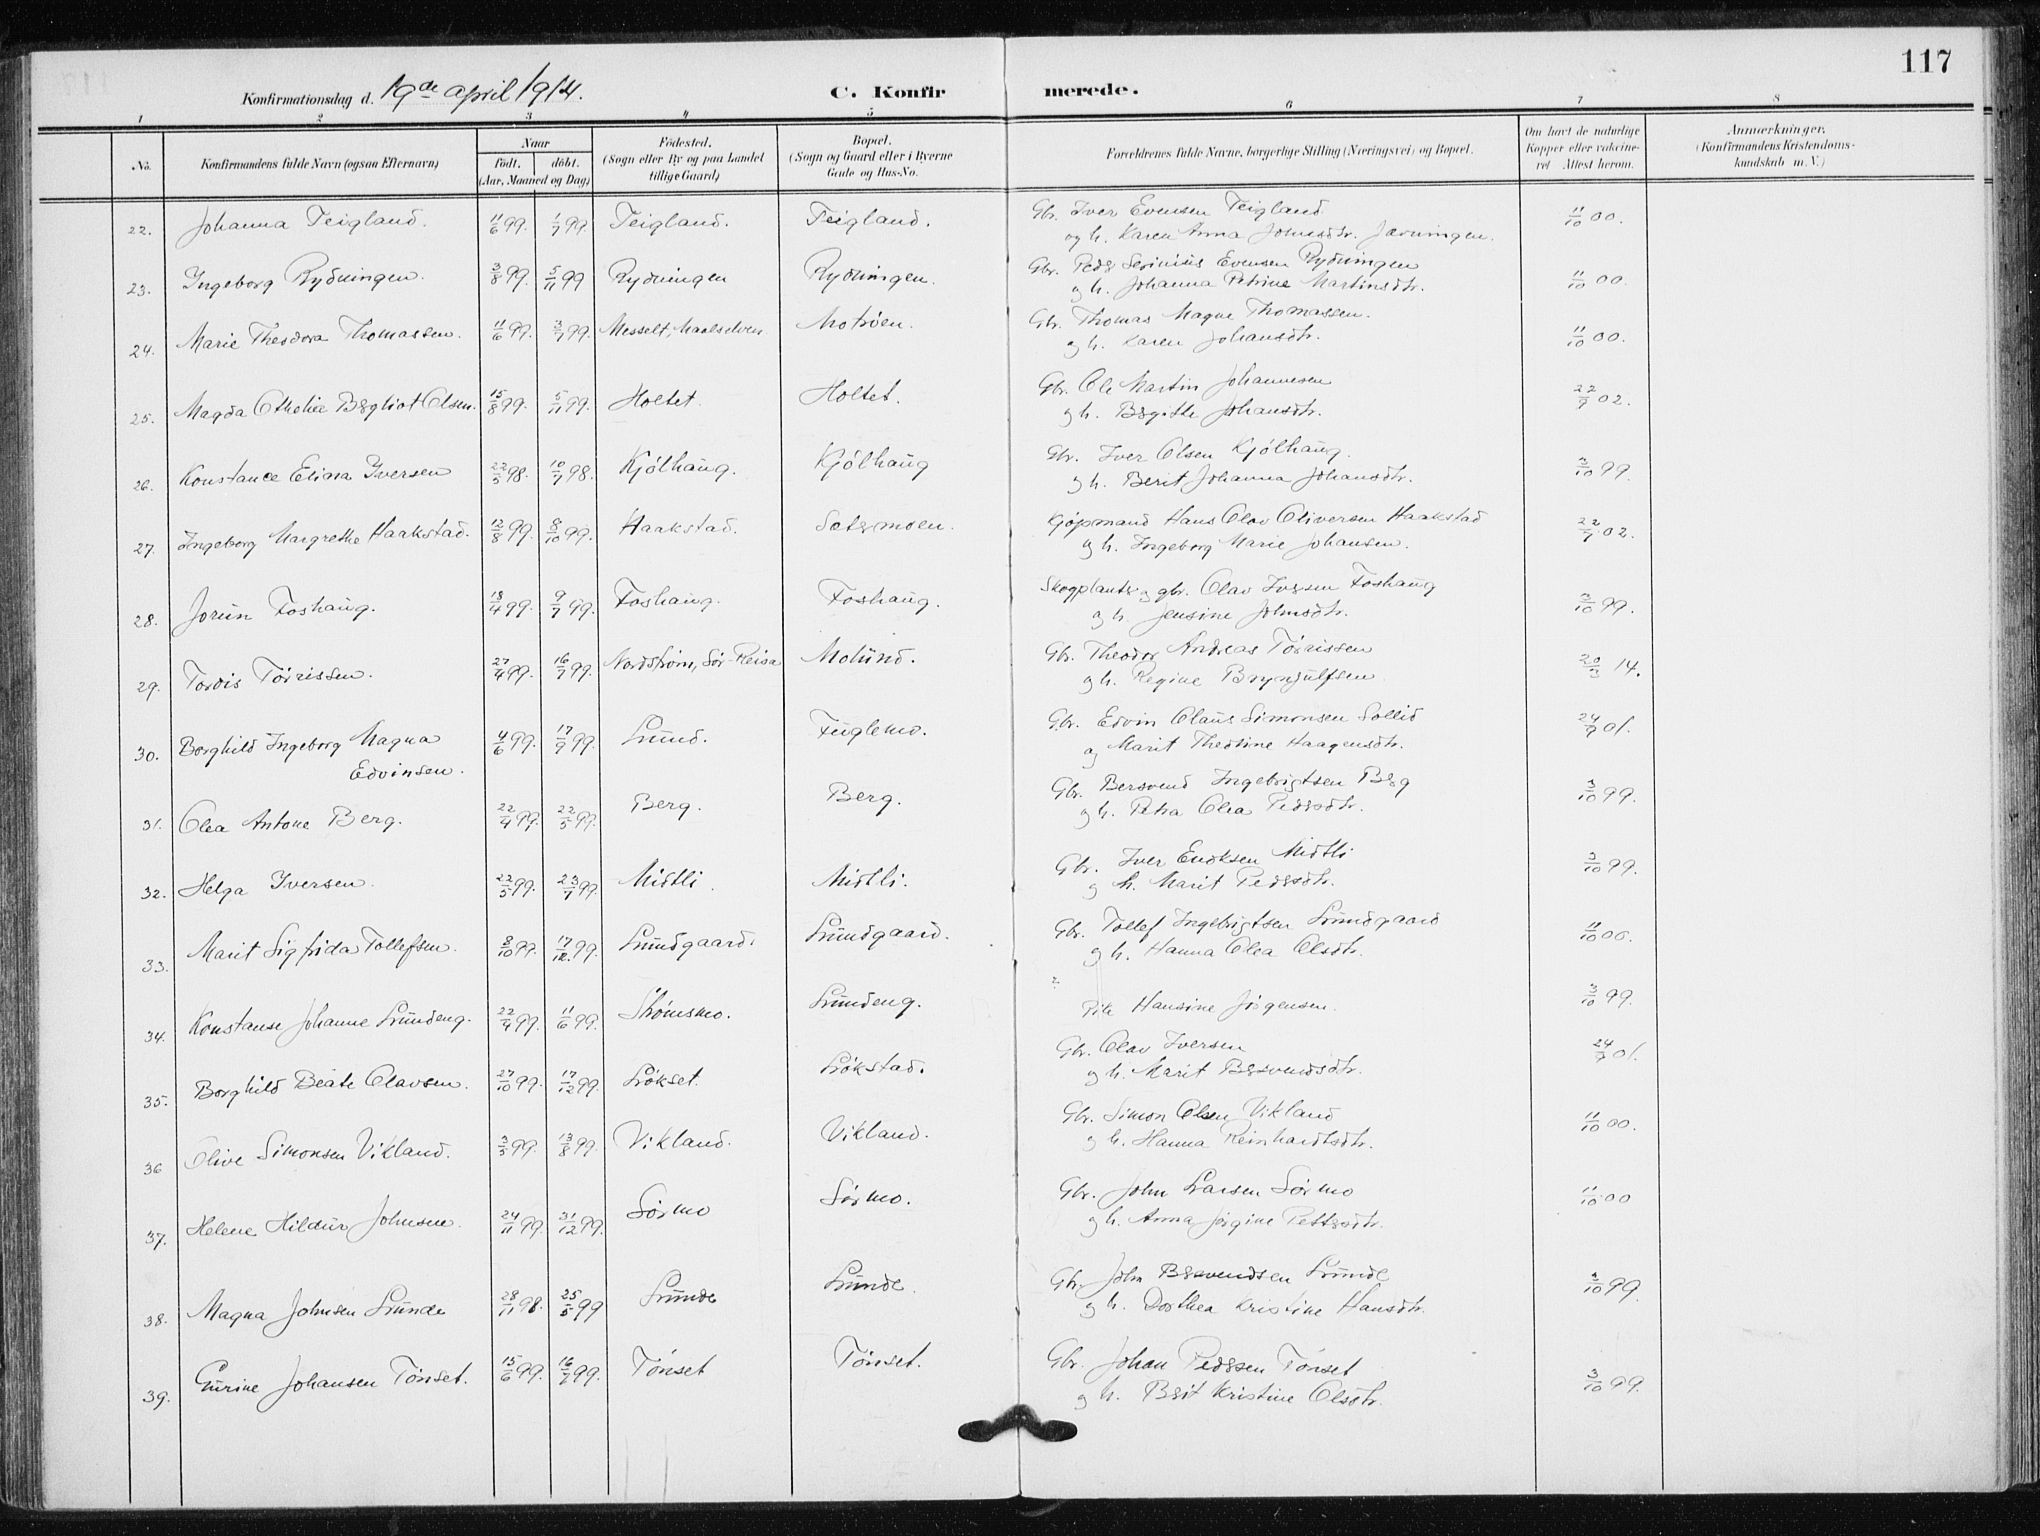 117
Konfirmationsdag d. 19de april 1914.
C. Konfir merede.
1 2 3 4 5 6 7 8
No. Konfirmandens fulde Navn (ogsaa Efternavn) Naar født. døbt. (Aar, Maaned og Dag) Fødested. (Sogn eller By og paa Landet tillige Gaard) Bopæl. (Sogn og Gaard eller i Byerne Gade og Hus-No. Forældrenes fulde Navne, borgerlige Stilling (Næringsvei) og Bopæl. Om havt de naturlige Kopper eller vaccineret Attest herom. Anmærkninger. (Konfirmandens Kristendomskundskab m. V.)
22. Johanna Teigland. 11/6 99. 1/7 99. Teigland. Teigland. Gbr. Iver Evensen Teigland 11/10 00.
og h. Karen Anna Johnsdtr.
23. Ingeborg Rydningen. 3/8 99. 5/11 99 Rydningen Rydningen. Gbr. Peder Serinius Evensen Rydningen 11/10 00.
og h. Johanna Petrine Martinsdtr.
24. Marie Theodora Thomassen. 11/6 99. 3/7 99. Messelt, Maalselven Motrøen. Gbr. Thomas Magne Thomassen. 11/10 00.
og h. Karen Johansdtr.
25. Magda Othelie Bergliot Olsen. 15/8 99. 5/11 99. Holtet. Holtet. Gbr. Ole Martin Johannesen 22/7 02.
og h. Bergitte Johansdtr.
26. Konstance Elima Iversen 22/5 98. 10/7 98. Kjølhaug. Kjølhaug Gbr. Iver Olsen Kjølhaug. 3/10 99.
og h. Berit Johanna Johansdtr.
27. Ingeborg Margrethe Haakstad. 12/8 99. 8/10 99. Haakstad. Sætermoen. Kjøpmand Hans Olav Oliversen Haakstad 22/7 02.
og h. Ingeborg Marie Johansen.
28. Jorun Foshaug. 13/4 99. 9/7 99. Foshaug. Foshaug. Skogplanter og gbr. Olav Iversen Foshaug 3/10 99.
og h. Jensine Johnsdtr.
29. Tordis Tørrissen. 27/4 99. 16/7 99. Nordstrøm, Sør-Reisa Molund. Gbr. Theodor Andreas Tørrissen 20/3 14.
og h. Regine Brynjulfsen
30. Borghild Ingeborg Magna Edvinsen. 4/6 99. 17/9 99. Lund. Fuglemo. Gbr. Edvin Claus Simonsen Sollid 24/7 01.
og Marit Thedine Haagensdtr.
31. Olea Antone Berg. 22/4 99. 22/5 99. Berg. Berg. Gbr. Bersvend Ingebrigtsen Berg 3/10 99.
og h. Petra Olea Pedersdtr.
32. Helga Iversen. 22/5 99. 23/7 99. Midtli. Midtli. Gbr. Iver Enoksen Midtli 3/10 99.
og h. Marit Pedersdtr.
33. Marit Sigfrida Tollefsen. 8/10 99. 17/12 99. Lundgaard. Lundgaard. Gbr. Tollef Ingebrigtsen Lundgaard 11/10 00.
og h. Hanna Olea Olsdtr.
34. Konstanse Johanne Lundeng. 22/4 99. 11/6 99. Strømsmo. Lundeng. Pike Hansine Jørgensen. 3/10 99.
35. Borghild Beate Olavsen. 27/10 99. 17/12 99. Løkset. Løkstad. Gbr. Olav Iversen 24/7 01.
og h. Marit Bersvendsdtr.
36 Olive Simonsen Vikland. 3/5 99. 13/8 99. Vikland. Vikland. Gbr. Simon Olsen Vikland 11/10 00.
og h. Hanna Reinhardtsdtr.
37. Helene Hildur Johnsen. 24/11 99. 31/12 99. Sørmo Sørmo. Gbr. John Larsen Sørmo 11/10 00
og h. Anna Jørgine Pettersdtr.
38. Magna Johnsen Lunde 28/11 98. 25/5 99 Lunde Lunde. Gbr. John Bersvendsen Lunde 3/10 99.
og h. Dorthea Kristine Hansdtr.
39. Gurine Johansen Tønset. 15/6 99. 16/7 99. Tønset Tønset. Gbr. Johan Pedersen Tønset 3/10 99.
og h. Berit Kristine Olsdtr.